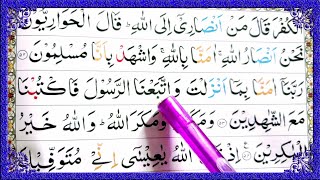 الْكُفْرَ قَالَ مَنْ اَنْصَارِیْۤ اِلَی اللّٰهِ ؕ قَالَ الْحَوَارِیُّوْنَ
نَحْنُ اَنْصَارُ اللّٰهِ ۚ اٰمَنَّا بِاللّٰهِ ۚ وَاشْهَدْ بِاَنَّا مُسْلِمُوْنَ ﴿۵۲﴾
رَبَّنَاۤ اٰمَنَّا بِمَاۤ اَنْزَلْتَ وَاتَّبَعْنَا الرَّسُوْلَ فَاكْتُبْنَا
مَعَ الشّٰهِدِیْنَ ﴿۵۳﴾ وَمَكَرُوْا وَمَكَرَ اللّٰهُ ؕ وَاللّٰهُ خَیْرُ
الْمٰكِرِیْنَ ﴿۵۴﴾ اِذْ قَالَ اللّٰهُ یٰعِیْسٰۤی اِنِّیْ مُتَوَفِّیْكَ